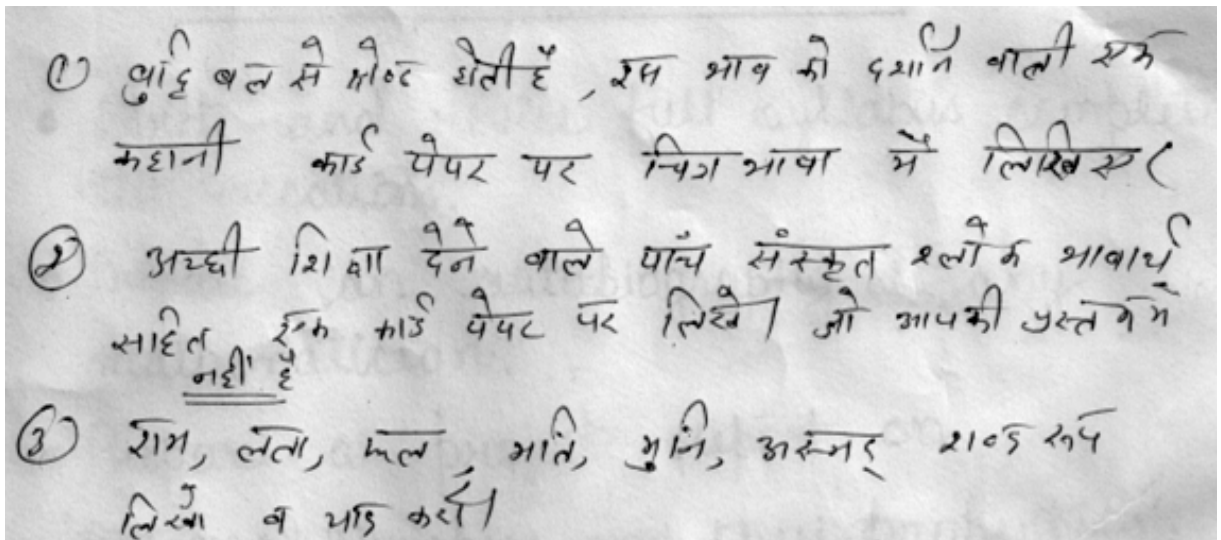 (1) बुद्धि बल से श्रेष्ठ होती है, इस भाव को दर्शाने वाली एक
कहानी कार्ड पेपर पर चित्र भाषा में लिखिए।
(2) अच्छी शिक्षा देने वाले पाँच संस्कृत श्लोक भावार्थ
सहित एक कार्ड पेपर पर लिखें। जो आपकी पुस्तक में
नहीं है
(3) राम, लता, फल, मति, मुनि, अस्मद् शब्द रूप
लिखें व याद करें।